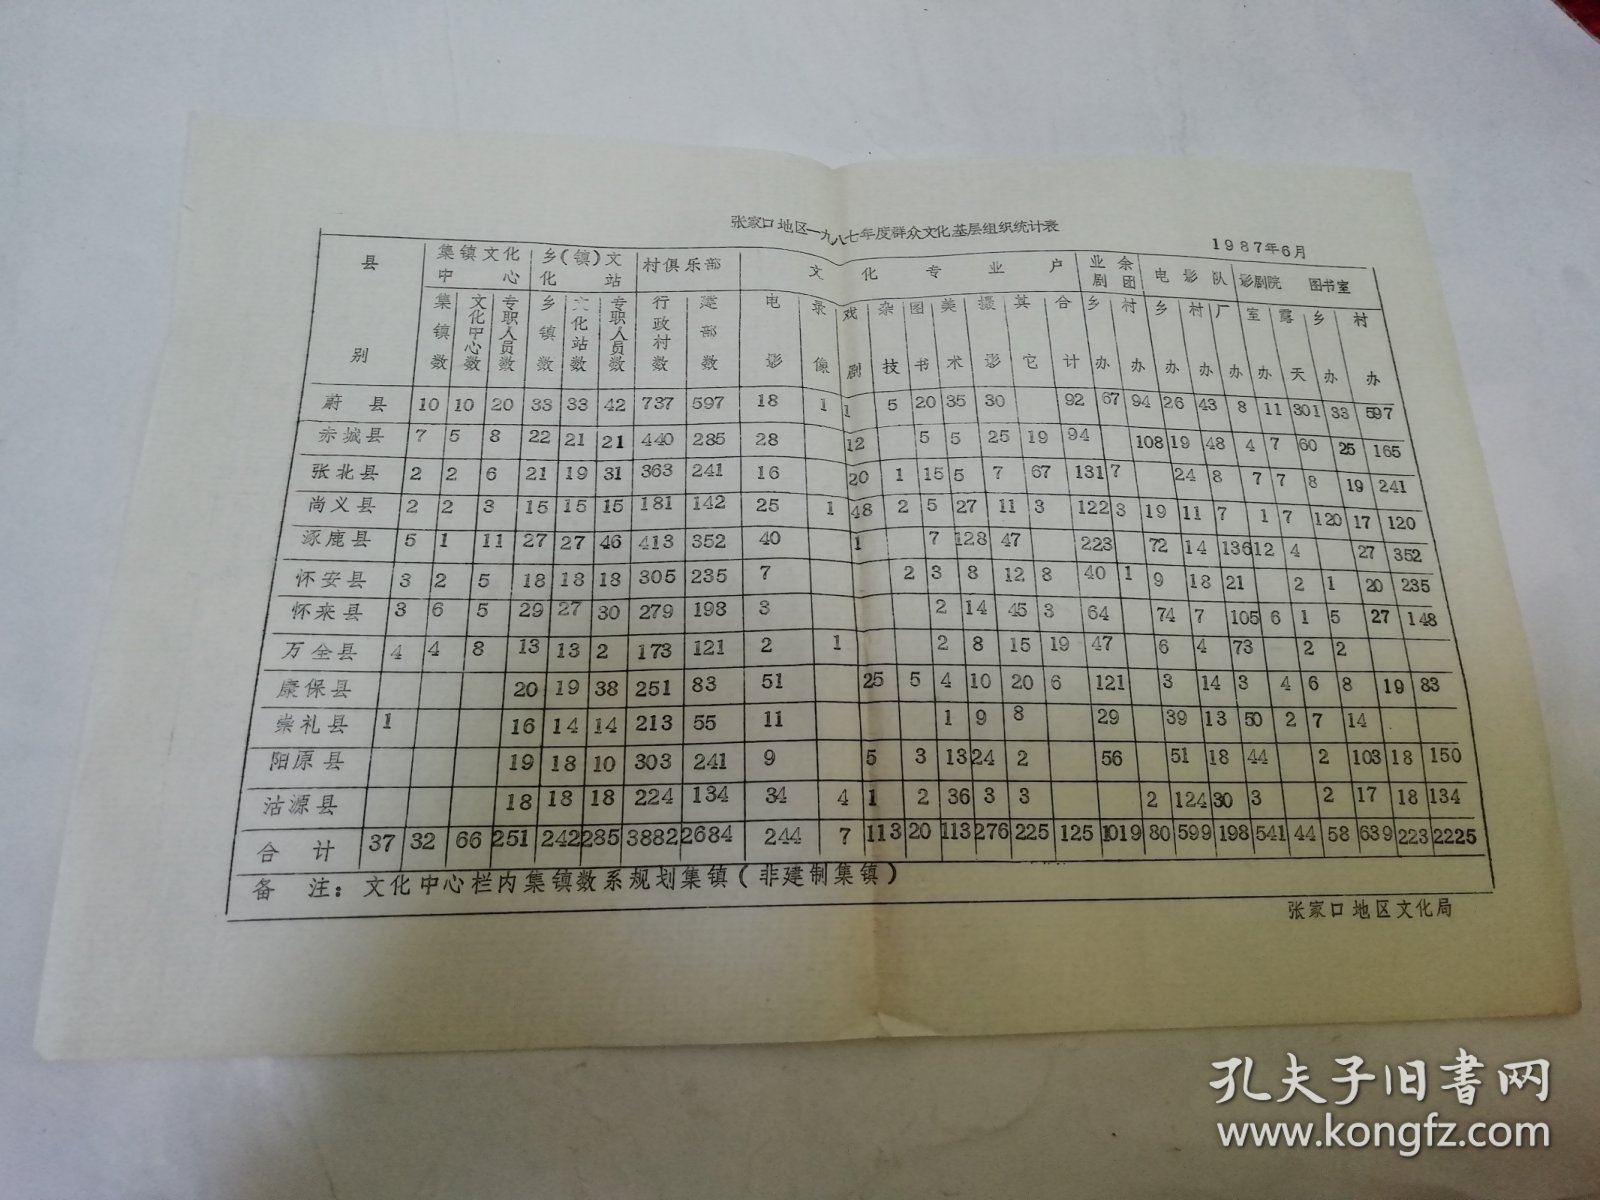 张家口地区一九八七年度群众文化基层组织统计表
1987年6月
县 别 集镇文化中心 乡(镇)文化站 村俱乐部 文化专业户 业余剧团 电影队 影剧院 图书室
集镇数 文化中心数 专职人员数 乡镇数 文化站数 专职人员数 行政村数 建部数 电影 录像 戏剧 杂技 图书 美术 摄影 其它 合计 乡办 村办 乡办 村办 厂办 室办 露天 乡办 村办
蔚县 10 10 20 33 33 42 737 597 18 1 1 5 20 35 30 92 67 94 26 43 8 11 301 33 597
赤城县 7 5 8 22 21 21 440 285 28 12 5 5 25 19 94 108 19 48 4 7 60 25 165
张北县 2 2 6 21 19 31 363 241 16 20 1 15 5 7 67 131 7 24 8 7 7 8 19 241
尚义县 2 2 3 15 15 15 181 142 25 1 48 2 5 27 11 3 122 3 19 11 7 1 7 120 17 120
涿鹿县 5 1 11 27 27 46 413 352 40 1 7 128 47 223 72 14 136 12 4 27 352
怀安县 3 2 5 18 18 18 305 235 7 2 3 8 12 8 40 1 9 18 21 2 1 20 235
怀来县 3 6 5 29 27 30 279 198 3 2 14 45 3 64 74 7 105 6 1 5 27 148
万全县 4 4 8 13 13 2 173 121 2 1 2 8 15 19 47 6 4 73 2 2
康保县 20 19 38 251 83 51 25 5 4 10 20 6 121 3 14 3 4 6 8 19 83
崇礼县 1 16 14 14 213 55 11 1 9 8 29 39 13 50 2 7 14
阳原县 19 18 10 303 241 9 5 3 13 24 2 56 51 18 44 2 103 18 150
沽源县 18 18 18 224 134 34 4 1 2 36 3 3 2 124 30 3 2 17 18 134
合计 37 32 66 251 242 285 3882 2684 244 7 113 20 113 276 225 125 1019 80 599 198 541 44 58 639 223 2225
备注：文化中心栏内集镇数系规划集镇(非建制集镇)
张家口地区文化局
孔夫子旧书网
www.kongfz.com